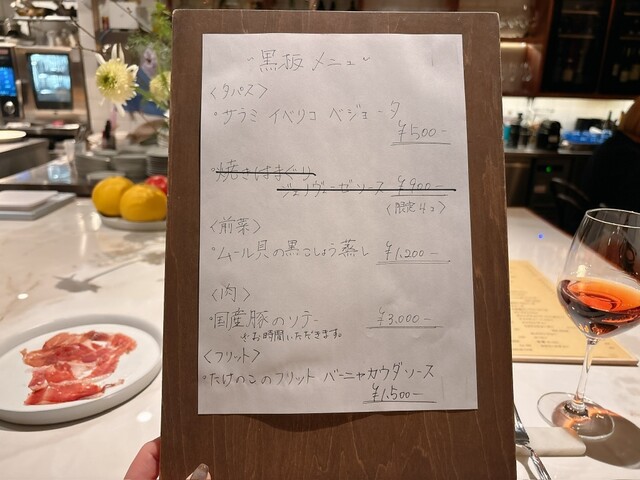 "黒板メニュー"
<タパス>
・サラミ イベリコ ベジョータ
¥500-
焼きはまぐり
ジェノヴェーゼソース ¥900-
<限定4コ>
<前菜>
・ムール貝の黒こしょう蒸し ¥1,200-
<肉>
・国産豚のソテー ¥3,000-
※お時間いただきます。
<フリット>
・たけのこのフリット バーニャカウダソース
¥1,500-